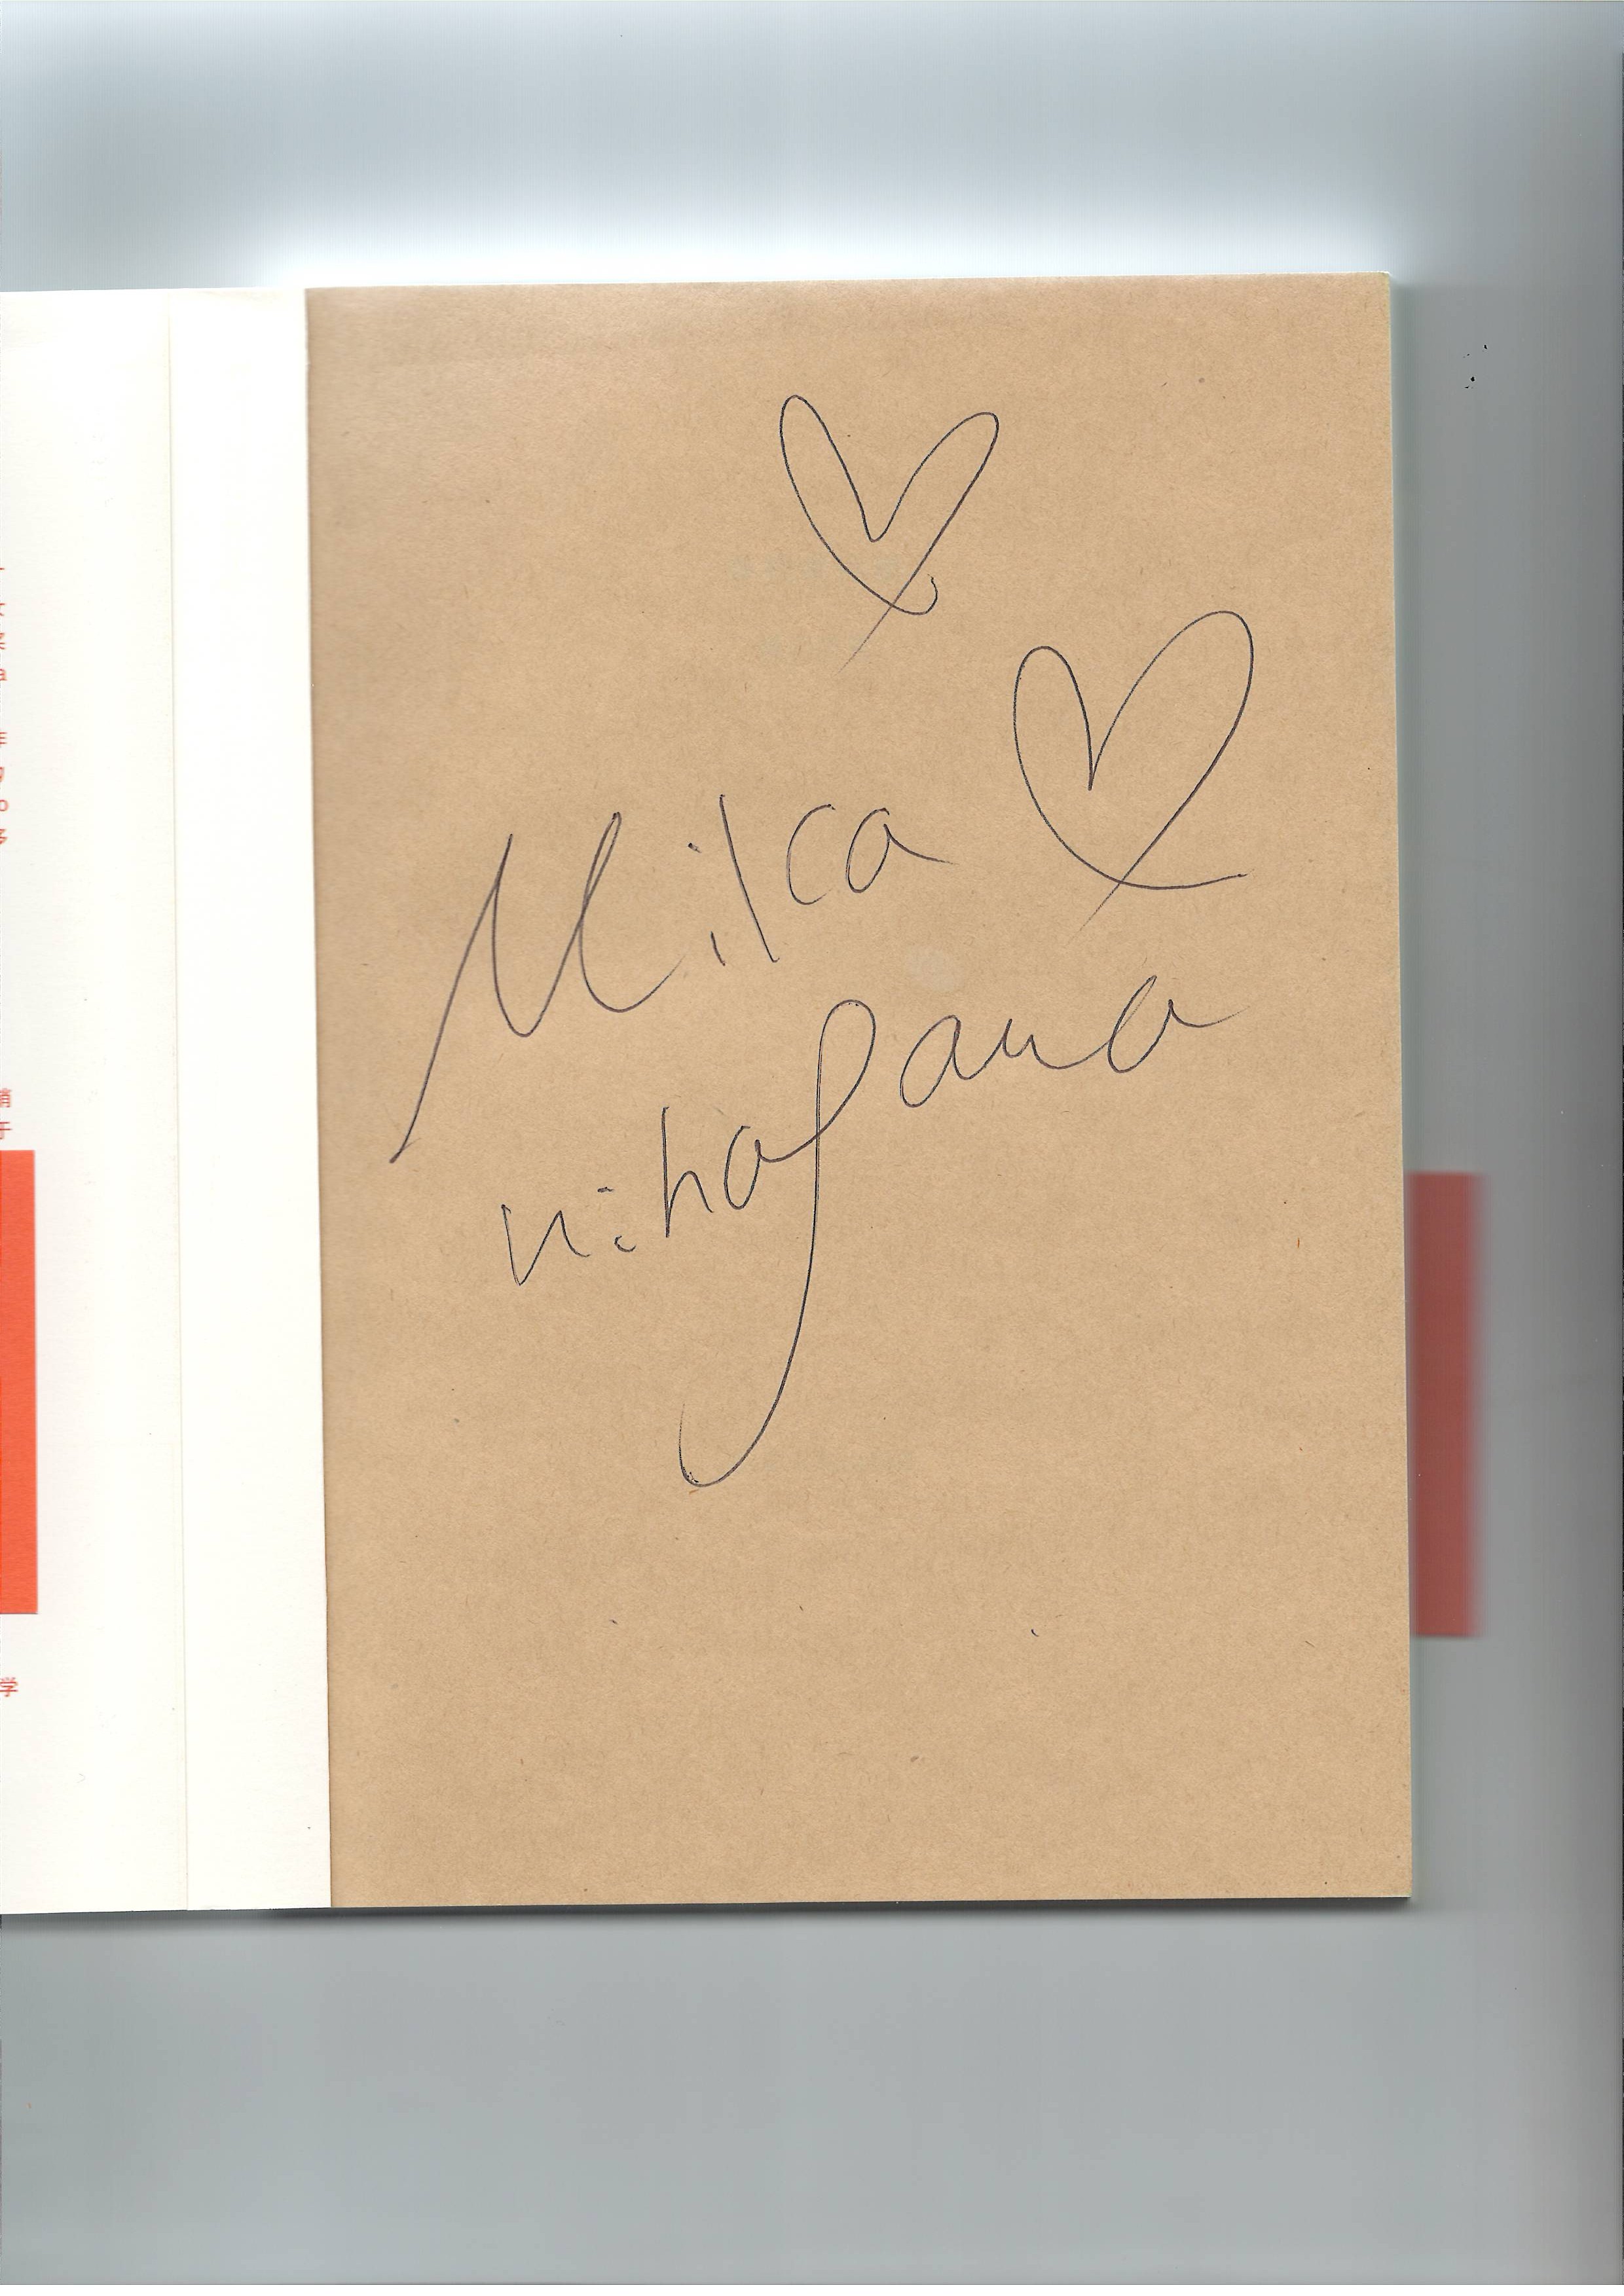 Mika
Ninagawa
学